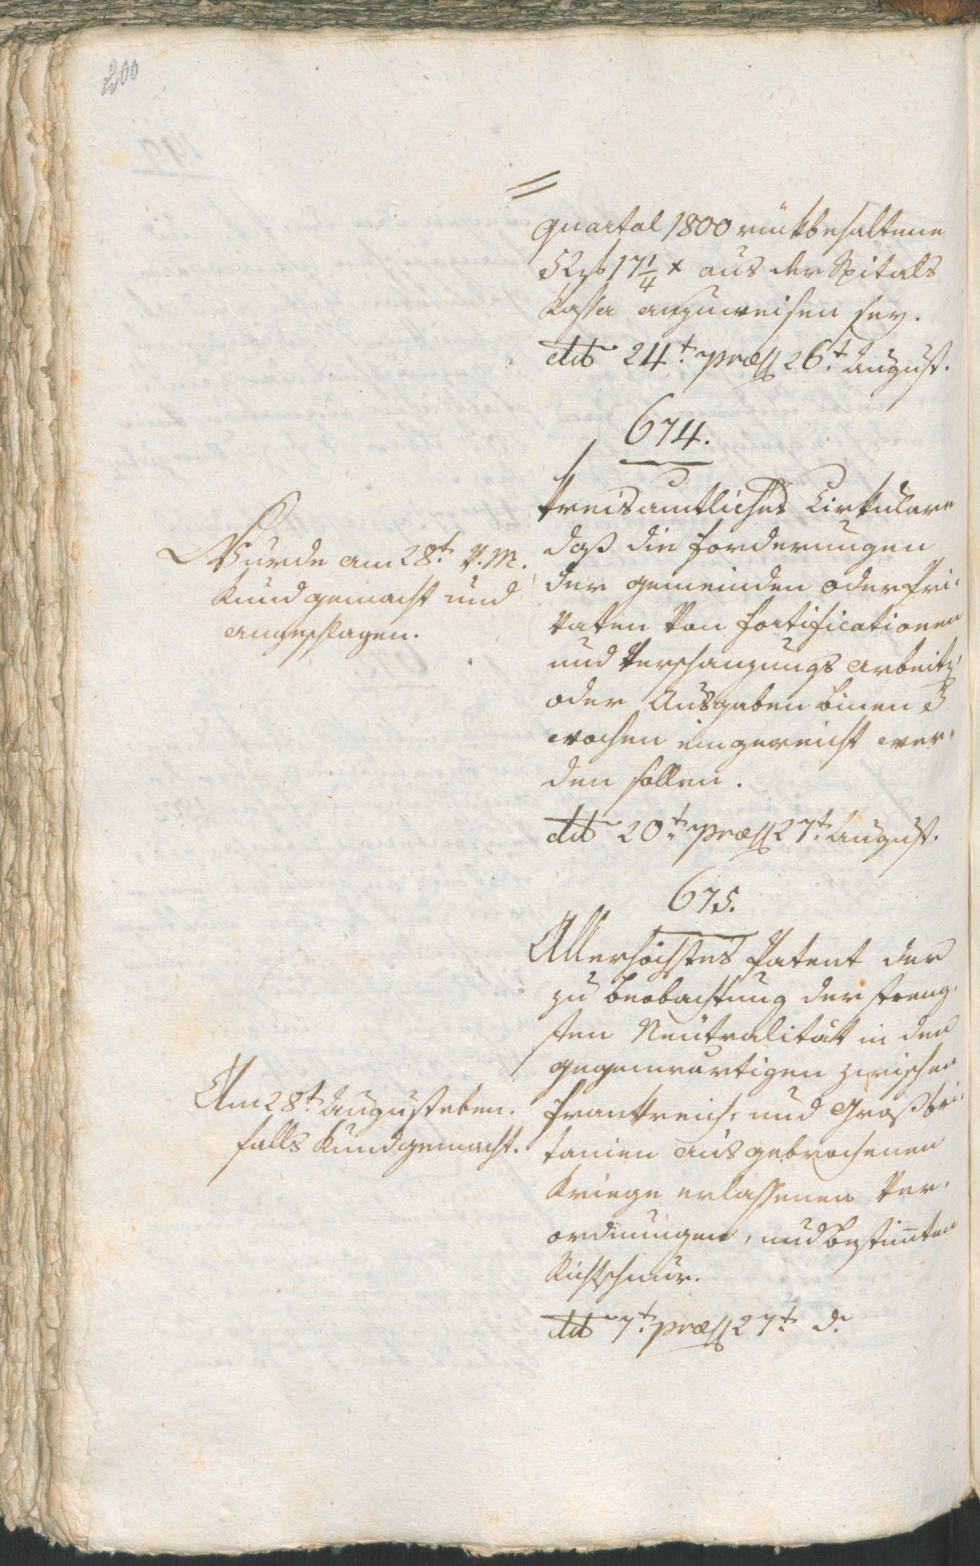 200
quartal 1800 rükbehaltene
52 f 17 1/4 x aus der Spitals
Kassa anzuweisen sey.
dtto 24t. præs 26t. August.
674.
Kreisamtliches Cirkulare
daß die Forderungen
der Gemeinden oder Pri-
vaten von Fortificationen
und Verschanzungs Arbeits
oder Ausgaben binen 3
wochen eingereicht wer-
den sollen.
dtto 20t. præs 27t. August.
Wurde am 28t. V.M.
Kund gemacht und
angeschlagen.
675.
Allerhöchstes Patent der
zu beobachtung der streng-
sten Neutralität in dem
gegenwärtigen zwischen
Frankreich, und Großbri-
tanien ausgebrochenen
Kriege erlassenen Ver-
ordnungen, und bestim̄ten
Richtschnur.
dtto 7t. præs 27t. d.
Am 28t. August eben-
falls Kundgemacht.